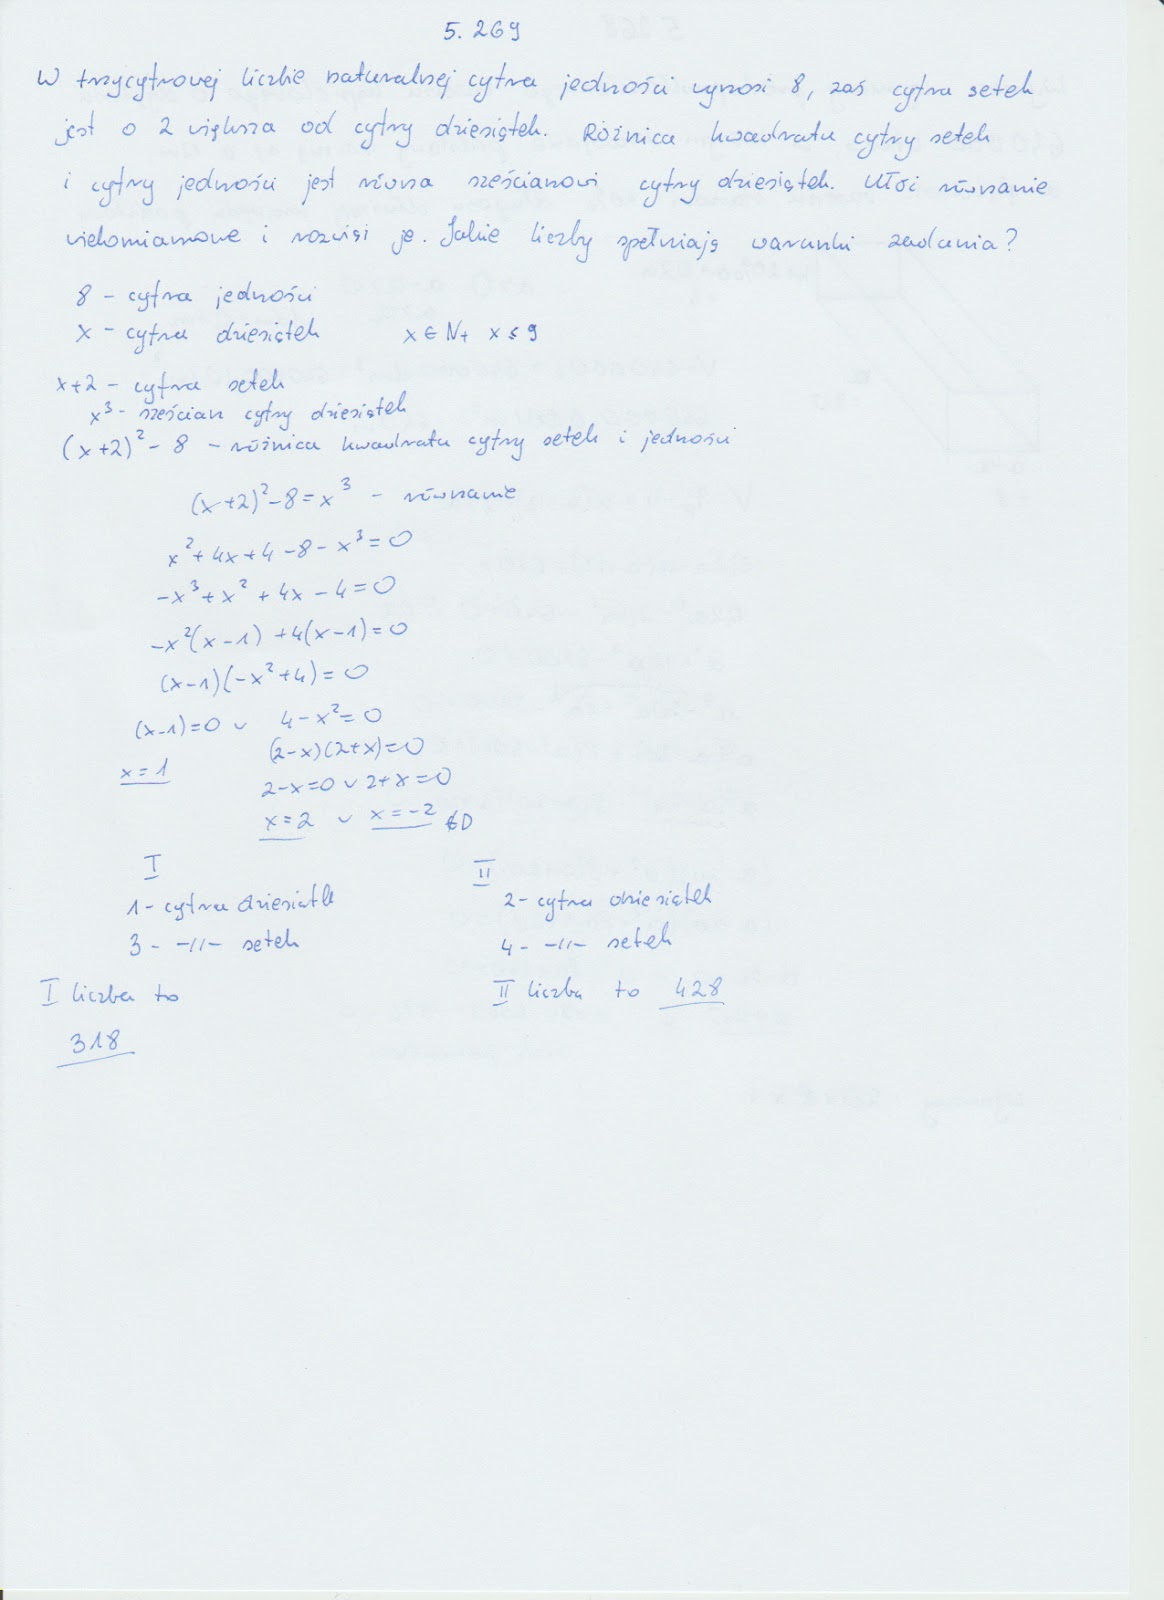 5.269
W trzycyfrowej liczbie naturalnej cyfra jedności wynosi 8, zaś cyfra setek
jest o 2 większa od cyfry dziesiątek. Różnica kwadratu cyfry setek
i cyfry jedności jest równa sześcianowi cyfry dziesiątek. Ułóż równanie
wielomianowe i rozwiąż je. Jakie liczby spełniają warunki zadania?
8 - cyfra jedności
x - cyfra dziesiątek x ∈ N+ x ≤ 9
x+2 - cyfra setek
x³ - sześcian cyfry dziesiątek
(x+2)² - 8 - różnica kwadratu cyfry setek i jedności
(x+2)² - 8 = x³ - równanie
x² + 4x + 4 - 8 - x³ = 0
-x³ + x² + 4x - 4 = 0
-x²(x-1) + 4(x-1) = 0
(x-1)(-x²+4) = 0
(x-1)=0 ∨ 4-x²=0
(2-x)(2+x)=0
x=1
2-x=0 ∨ 2+x=0
x=2 ∨ x=-2 ∉D
I II
1 - cyfra dziesiątek 2 - cyfra dziesiątek
3 - -//- setek 4 - -//- setek
I liczba to II liczba to 428
318